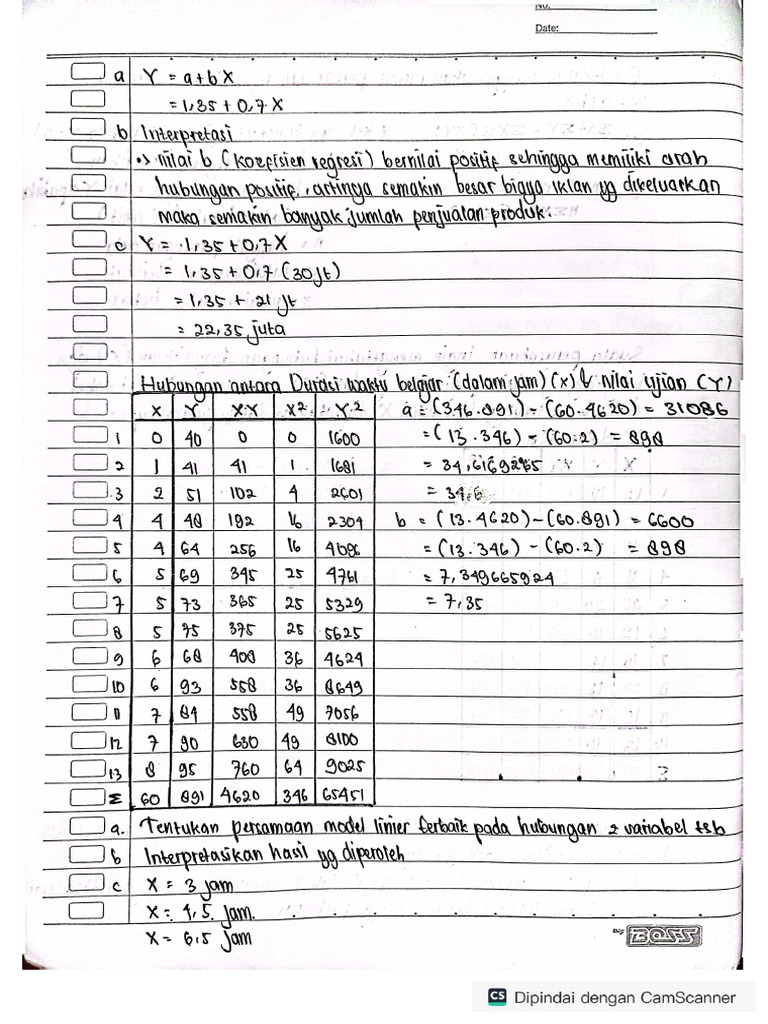 No.
Date:
a Y = a+bX
= 1,35 + 0,7 X
b Interpretasi
•> Nilai b (koefisien regresi) bernilai positif sehingga memiliki arah
hubungan positif, artinya semakin besar biaya iklan yg dikeluarkan
maka semakin banyak jumlah penjualan produk.
c Y = 1,35 + 0,7 X
= 1,35 + 0,7 (30 jt)
= 1,35 + 21 jt
= 22,35 juta
Hubungan antara Durasi waktu belajar (dalam jam) (x) & nilai ujian (Y)
X Y X.Y X² Y²
1 0 40 0 0 1600
2 1 41 41 1 1681
3 2 51 102 4 2601
4 4 48 192 16 2304
5 4 64 256 16 4096
6 5 69 345 25 4761
7 5 73 365 25 5329
8 5 75 375 25 5625
9 6 68 408 36 4624
10 6 93 558 36 8649
11 7 84 558 49 7056
12 7 90 630 49 8100
13 8 95 760 64 9025
Σ 60 891 4620 346 65451
a = (346.891) - (60.4620) = 31086
= (13.346) - (60.2) = 898
= 34,6169265
= 34,6
b = (13.4620) - (60.891) = 6600
= (13.346) - (60.2) = 898
= 7,349665924
= 7,35
a. Tentukan persamaan model linier terbaik pada hubungan 2 variabel tsb
b Interpretasikan hasil yg diperoleh
c X = 3 jam
X = 4,5 jam.
X = 6,5 jam
Big BOSS
CS Dipindai dengan CamScanner